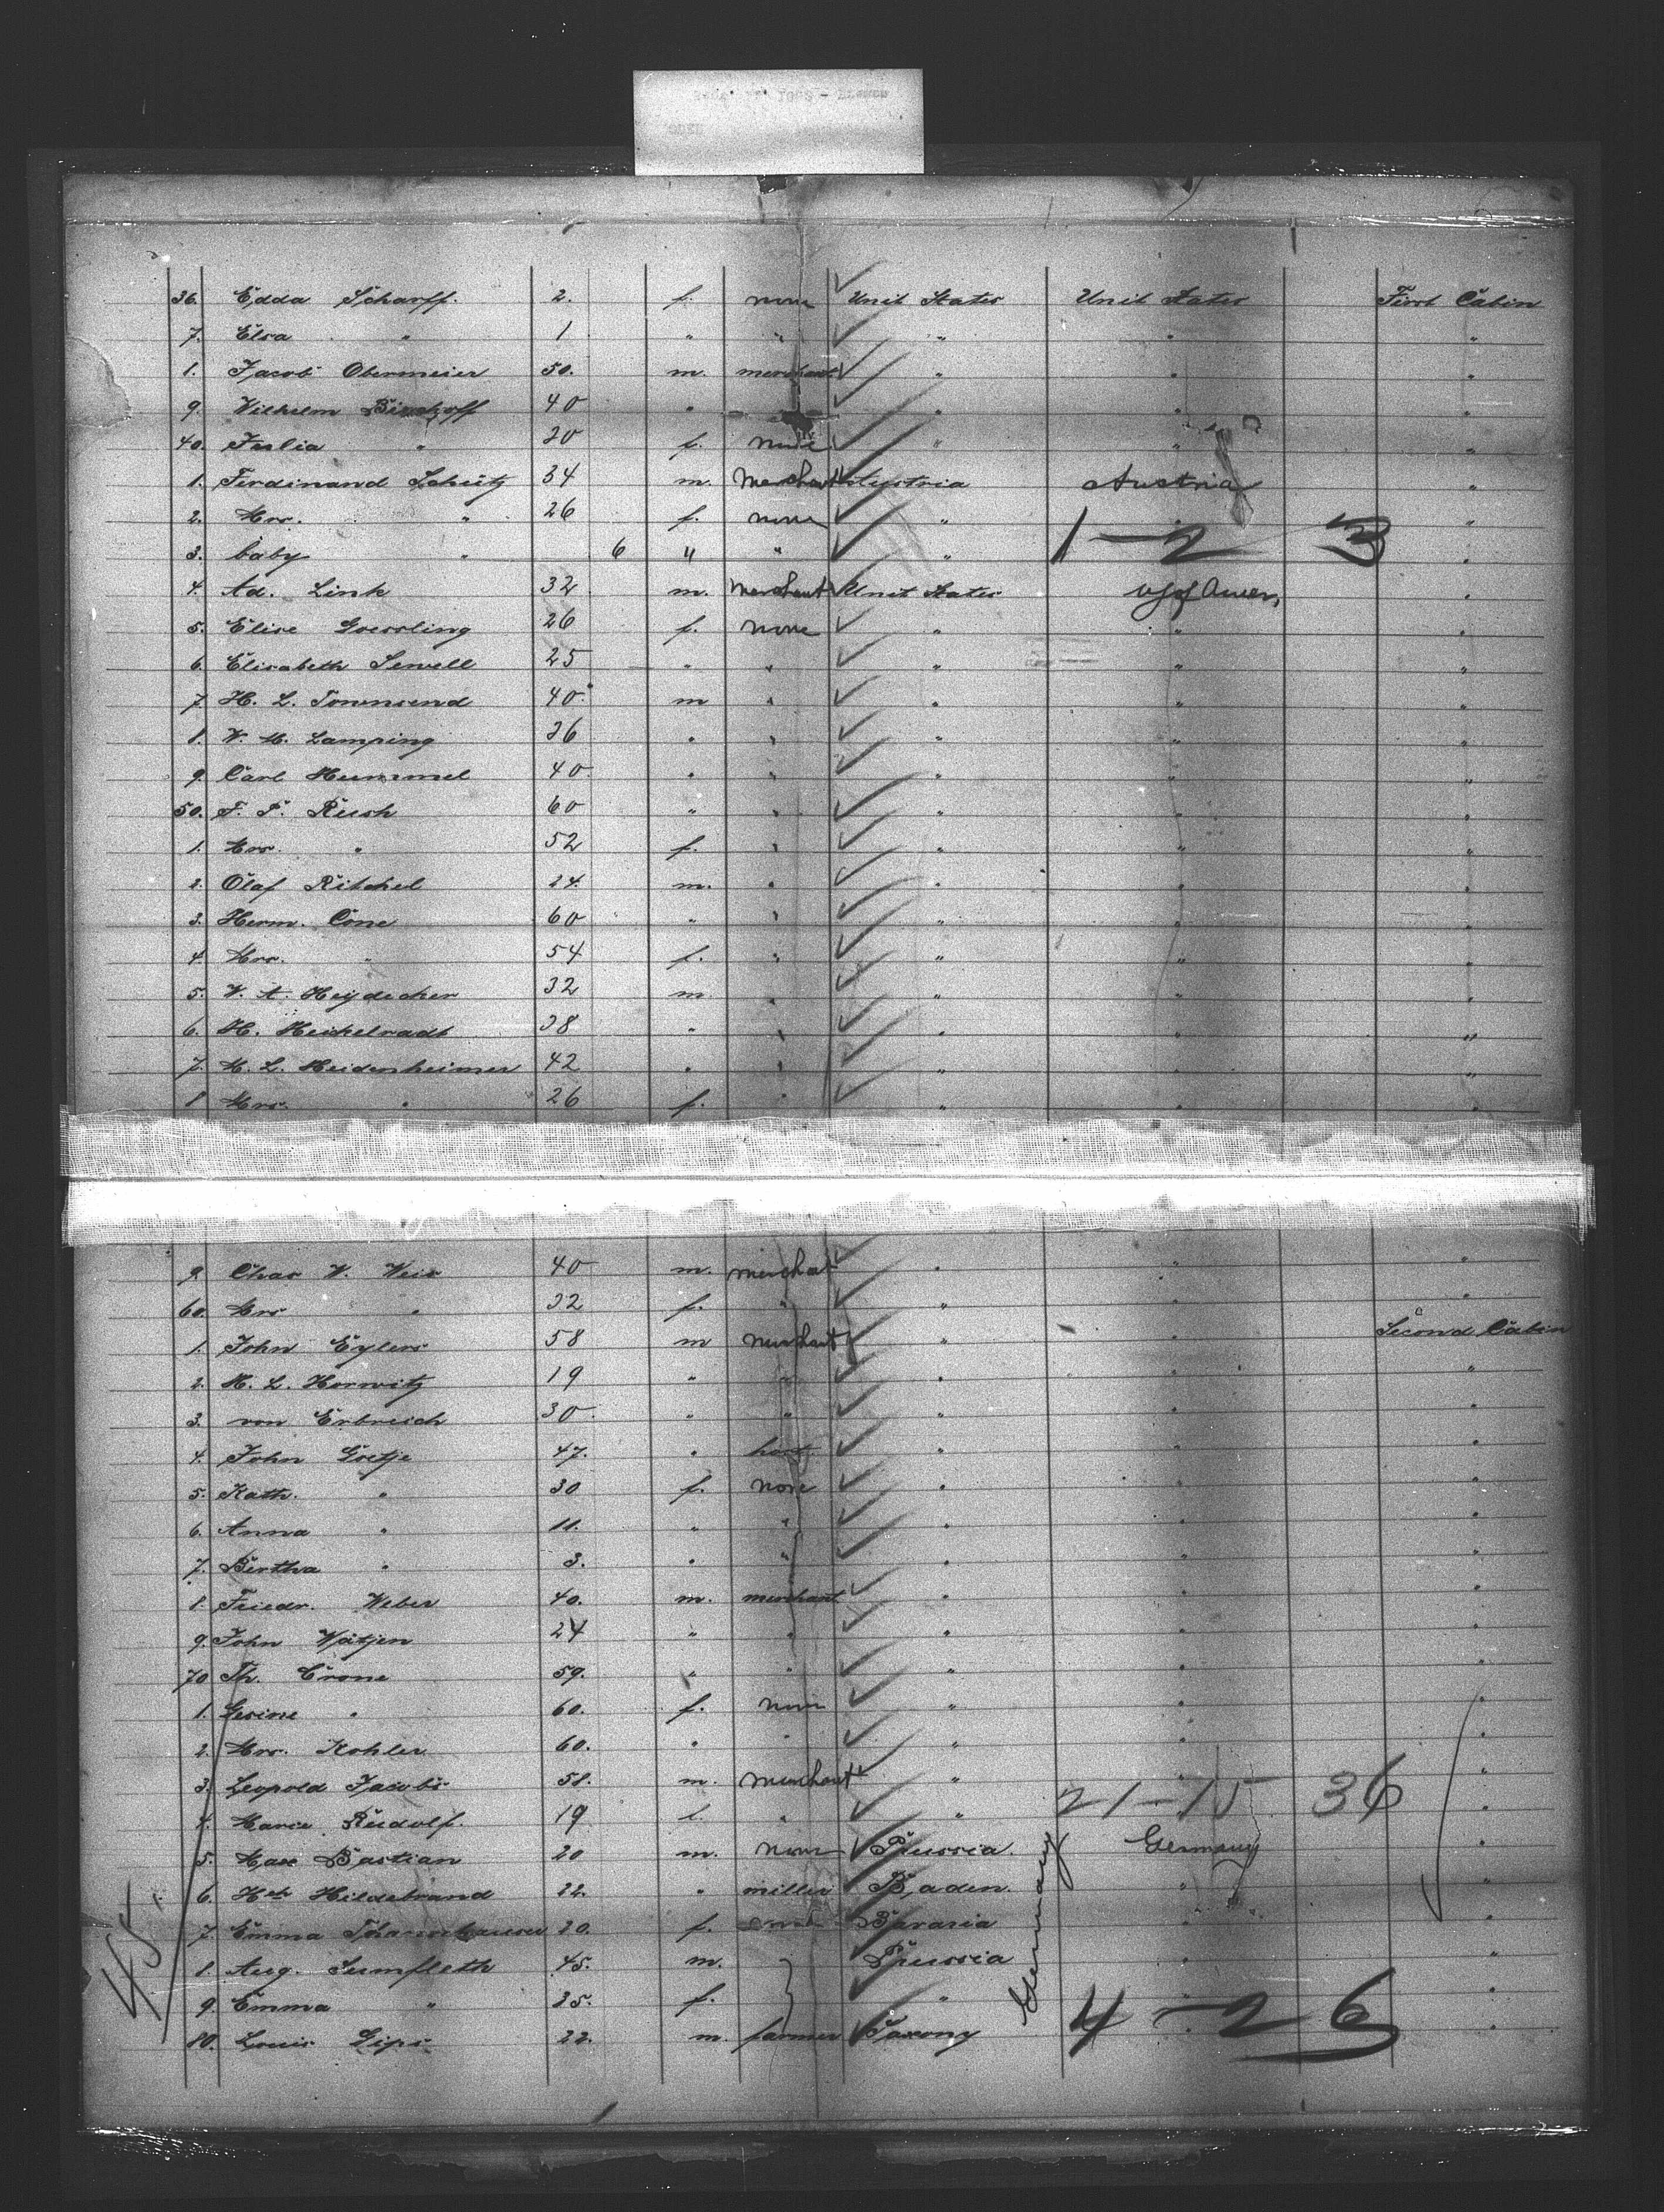 36. Edda Scharff. 2. f. none Unit States Unit States First Cabin
7. Elsa " 1 " " " " "
1. Jacob Obermeier 50. m. merchant " " "
9. Wilhelm Bischoff 40 " " " "
40. Julia " 20 f. none " " "
1. Ferdinand Schütz 34 m. Merchant Austria Austria "
2. Mrs. " 26 f. none " " "
3. baby " 6 " " " 1-2 3 "
4. Ad. Link 32 m. Merchant Unit States US of Amer, "
5. Elise Goessling 26 f. none " " "
6. Elisabeth Sewell 25 " " " " "
7. H. L. Townsend 40 m " " " "
8. W. M. Lamping 36 " " " " "
9. Carl Hummel 40 " " " " "
50. F. P. Rush 60 " " " " "
1. Mrs. " 52 f. " " " "
2. Olaf Ritchel 24. m. " " " "
3. Herm. Cone 60 " " " " "
4. Mrs. " 54 f. " " " "
5. W. A. Heydecker 32 m. " " " "
6. H. 38 " " " " "
7. M. L. Heidenheimer 42 " " " " "
8 Mrs. " 26 f. " " " "
9. Chas W. Weis 40 m. merchant " " "
60. Mrs " 32 f. " " " "
1. John Eylers 58 m merchant " " Second Cabin
2. M. L. Horwitz 19 " " " " "
3. von Erbreich 30 " " " " "
4. John Goetje 47. " " " "
5. Kath. " 30 f. none " " "
6. Anna " 11. " " " " "
7. Bertha " 3. " " " " "
8. Friedr. Weber 40. m. merchant " " "
9. John Wätjen 24 " " " " "
70 Th. Crone 59. " " " " "
1. Gesine " 60. f. none " " "
2. Mrs. Kohler 60. " " " " "
3. Leopold Jacobi 58. m. merchant " " "
4. Marie Rudolf. 19 f. " " 21-15 36 "
5. Max Bastian 20 m. none Prussia. Germany "
6. Hch Hildebrand 22. " miller Baden. " "
7. Emma 20. f. Bavaria " "
8. Aug. Sumfleth 45. m. Prussia " "
9. Emma " 35. f. " " "
80. Louis Gips 22. m. farmer Saxony 4-26 "
Germany
45.